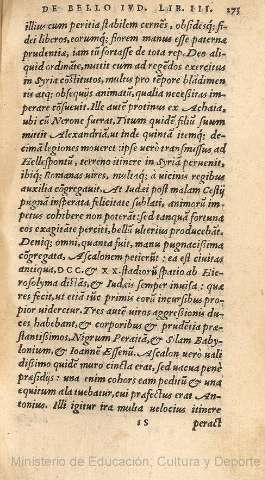 DE BELLO IVD. LIB. III. 273
illius cum peritia stabilem cernẽs, obsidesq; fi-
dei liberos, eorumq; florem manus esse paternæ
prudentiæ, iam tũ fortasse de tota rep. Deo ali-
quid ordinãte, mittit eum ad regẽdos exercitus
in Syria cõstitutos, multis pro tẽpore blãdimen
tis atq; obsequijs animatũ, qualia necessitas im-
perare cõsueuit. Ille autẽ protinus ex Achaia,
ubi cũ Nerone fuerat, Titum quidẽ filiũ suum
mittit Alexandriã, ut inde quintã itemq; de-
cimã legiones moueret: ipse uerò transmissus ad
Hellespontũ, terreno itinere in Syriã peruenit,
ibiq; Romanas uires, multaq; à uicinis regibus
auxilia cõgregauit. At Iudæi post malam Cestij
pugnã insperata felicitate sublati, animorũ im-
petus cohibere non poterãt: sed tanquã fortuna
eos exagitare perciti, bellũ ulterius producebãt.
Deniq; omni, quanta fuit, manu pugnacissima
cõgregata, Ascalonem petierũt: ea est ciuitas
antiqua, DCC. & XX. stadiorũ spatio ab Hie-
rosolyma distãs, & Iudæis semper inuisa: qua
res fecit, ut etiã tũc primis eorũ incursibus pro-
pior uideretur. Tres autẽ uiros aggressionis du-
ces habebant, & corporibus & prudẽtia præ-
stantissimos, Nigrum Peraitã, & Silam Baby-
lonium, & Ioannẽ Essenũ. Ascalon uerò uali
dissimo quidẽ muro cincta erat, sed uacua penè
præsidijs: una enim cohors eam peditũ & una
equitum ala tuebatur, cui præfectus erat An-
tonius. Illi igitur ira multa uelocius itinere
S peract
Ministerio de Educación, Cultura y Deporte